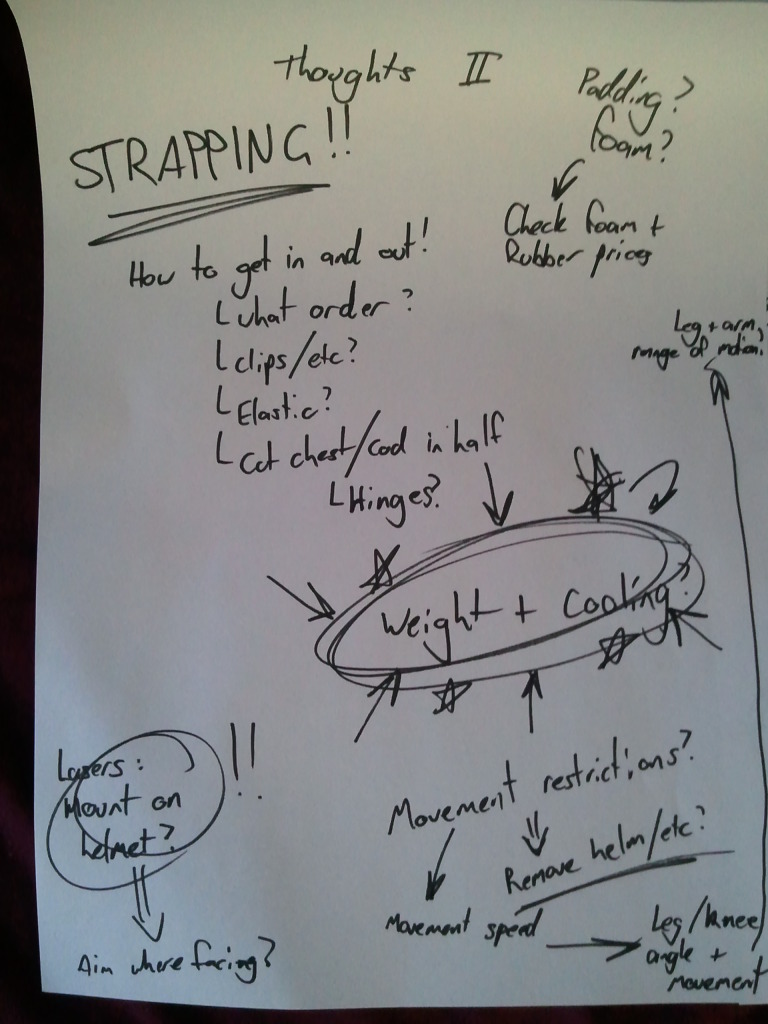 Thoughts II
STRAPPING!!
Padding?
foam?
Check foam +
Rubber prices
How to get in and out!
what order?
clips/etc?
Elastic?
Cut chest/cod in half
Hinges?
Leg + arm,
range of motion?
Weight + Cooling?
Lasers:
Mount on
helmet?
!!
Aim where facing?
Movement restrictions?
Remove helm/etc?
Movement speed
Leg/knee
angle +
movement